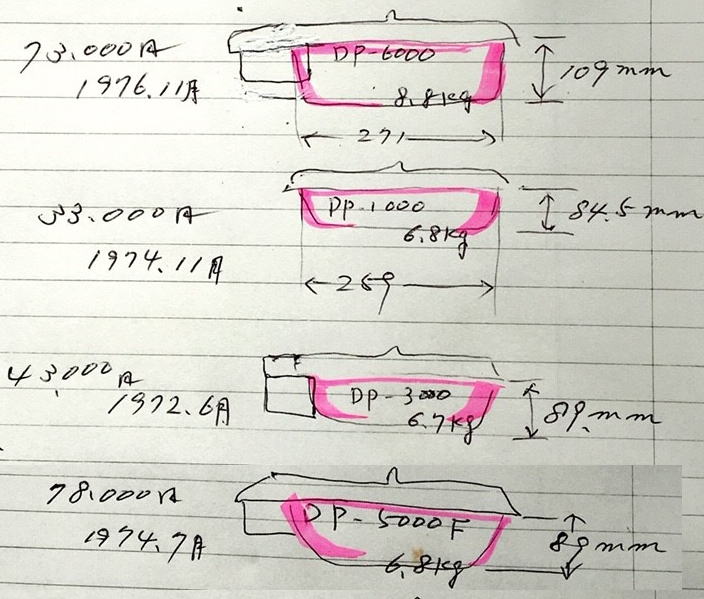 73.000円 DP-6000 109mm
1976.11月 8.8kg
271
33.000円 DP-1000 84.5mm
6.8kg
1974.11月
269
43,000円
1972.6月 DP-3000 89.mm
6.7kg
78.000円 DP-5000F
1974.7月 6.8kg 89mm